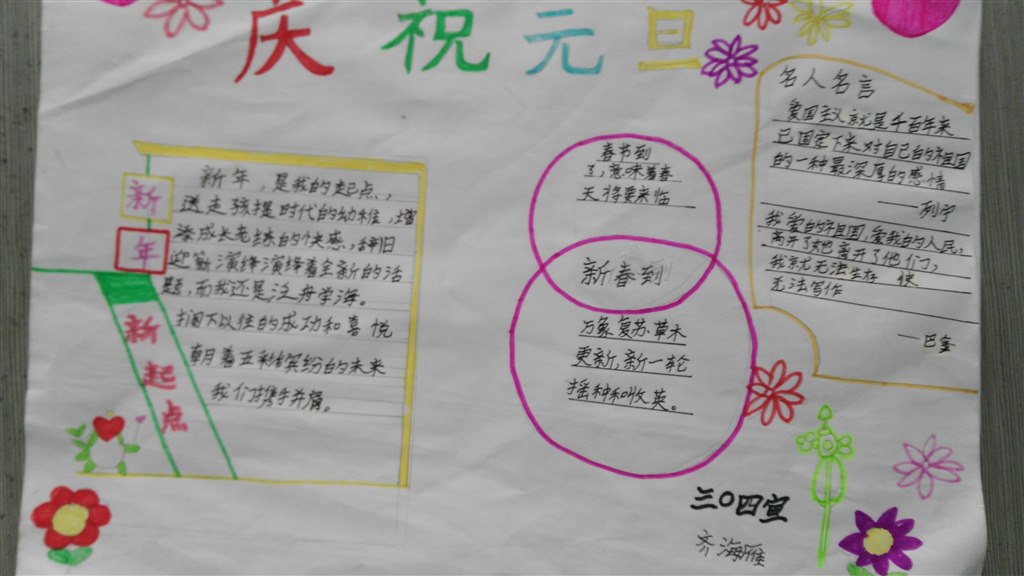 庆祝元旦
新年
新起点
新年，是我的起点，
透走孩提时代的幼稚，增
添成长老练的快感，辞旧
迎新演绎演绎着全新的话
题，而我还是泛舟学海。
搁下以往的成功和喜悦
朝着五彩缤纷的未来
我们才携手并肩。
春节到
了，意味着春
天将要来临
新春到
万象复苏、草木
更新，新一轮
播种和收英。
名人名言
爱国主义就是千百年来
已固定下来对自己的祖国
的一种最深厚的感情
——列宁
我爱的祖国，爱我的人民，
离开了她离开了他们，
我就无法生存
无法写作
——巴金
三〇四宣
齐海雁